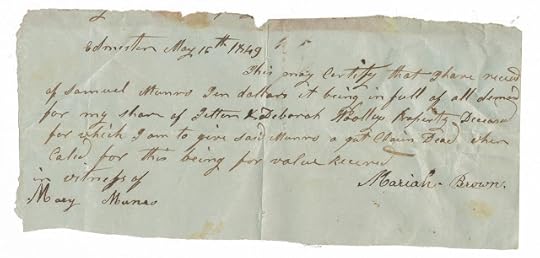 Edmeston May 15th 1849
This may Certify that I have receved
of Samuel Munro Ten dollars it being in full of all demand
for my share of & Deborah Property Deceased
for which I am to give said Munro a quit Claim Dead when
Caled for this being for value Received
in witness of Mariah Brown.
Mary Munro